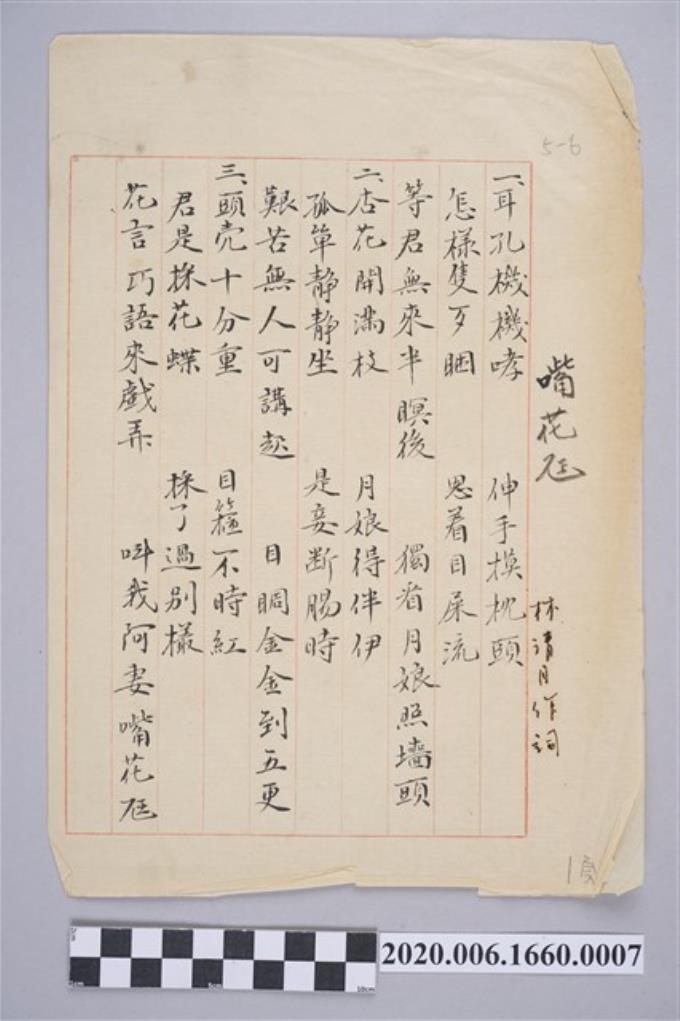 5-6
嘴花尫
林清月作詞
一、耳孔機機哮 伸手摸枕頭
怎樣隻歹睏 思着目屎流
等君無來半暝後 獨看月娘照墻頭
二、杏花開滿枝 月娘得伴伊
孤單靜靜坐 是妾斷腸時
艱苦無人可講起 目睭金金到五更
三、頭壳十分重 目箍不時紅
君是採花蝶 採了過別欉
花言巧語來戲弄 叫我阿妻嘴花尫
2020.006.1660.0007